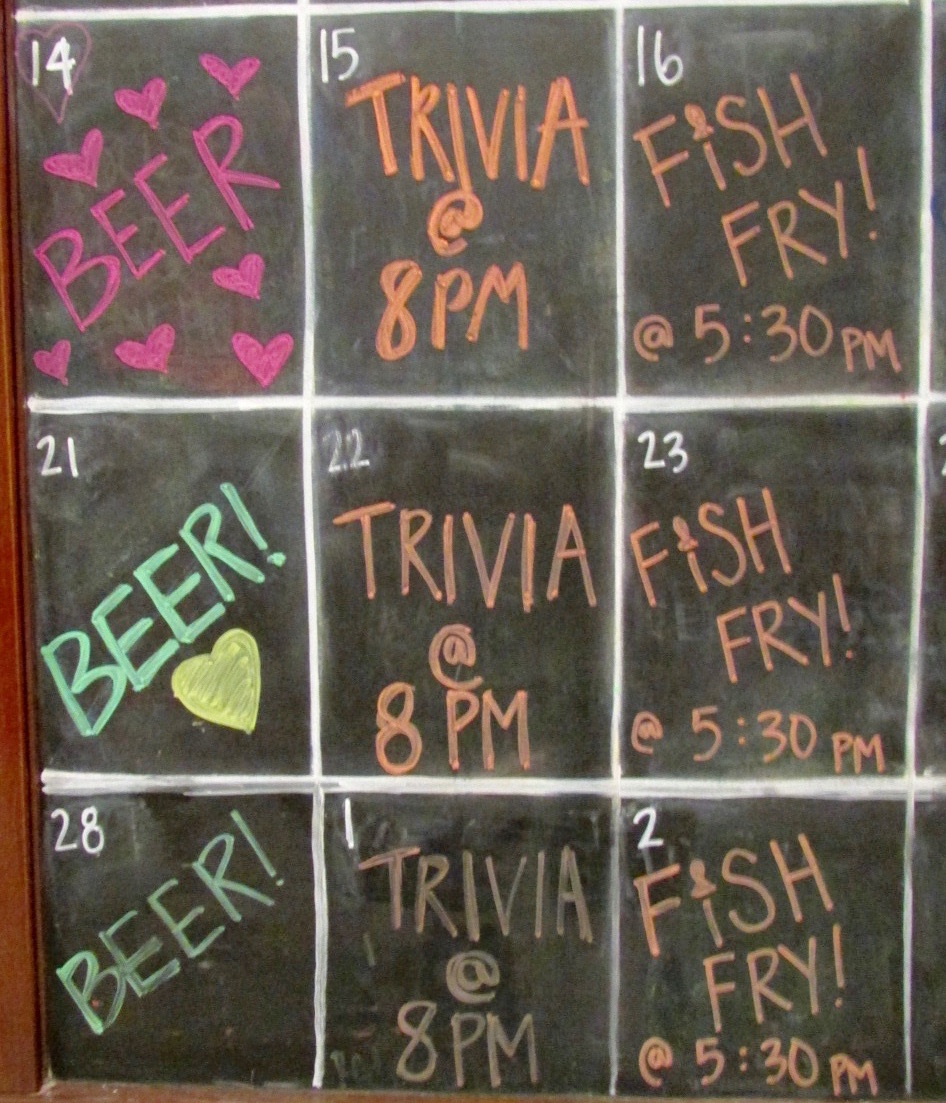 14
BEER
15
TRIVIA
@
8PM
16
FiSH
FRY!
@ 5:30 PM
21
BEER!
22
TRIVIA
@
8 PM
23
FiSH
FRY!
@ 5:30 PM
28
BEER!
1
TRIVIA
@
8PM
2
FiSH
FRY!
@ 5:30 PM